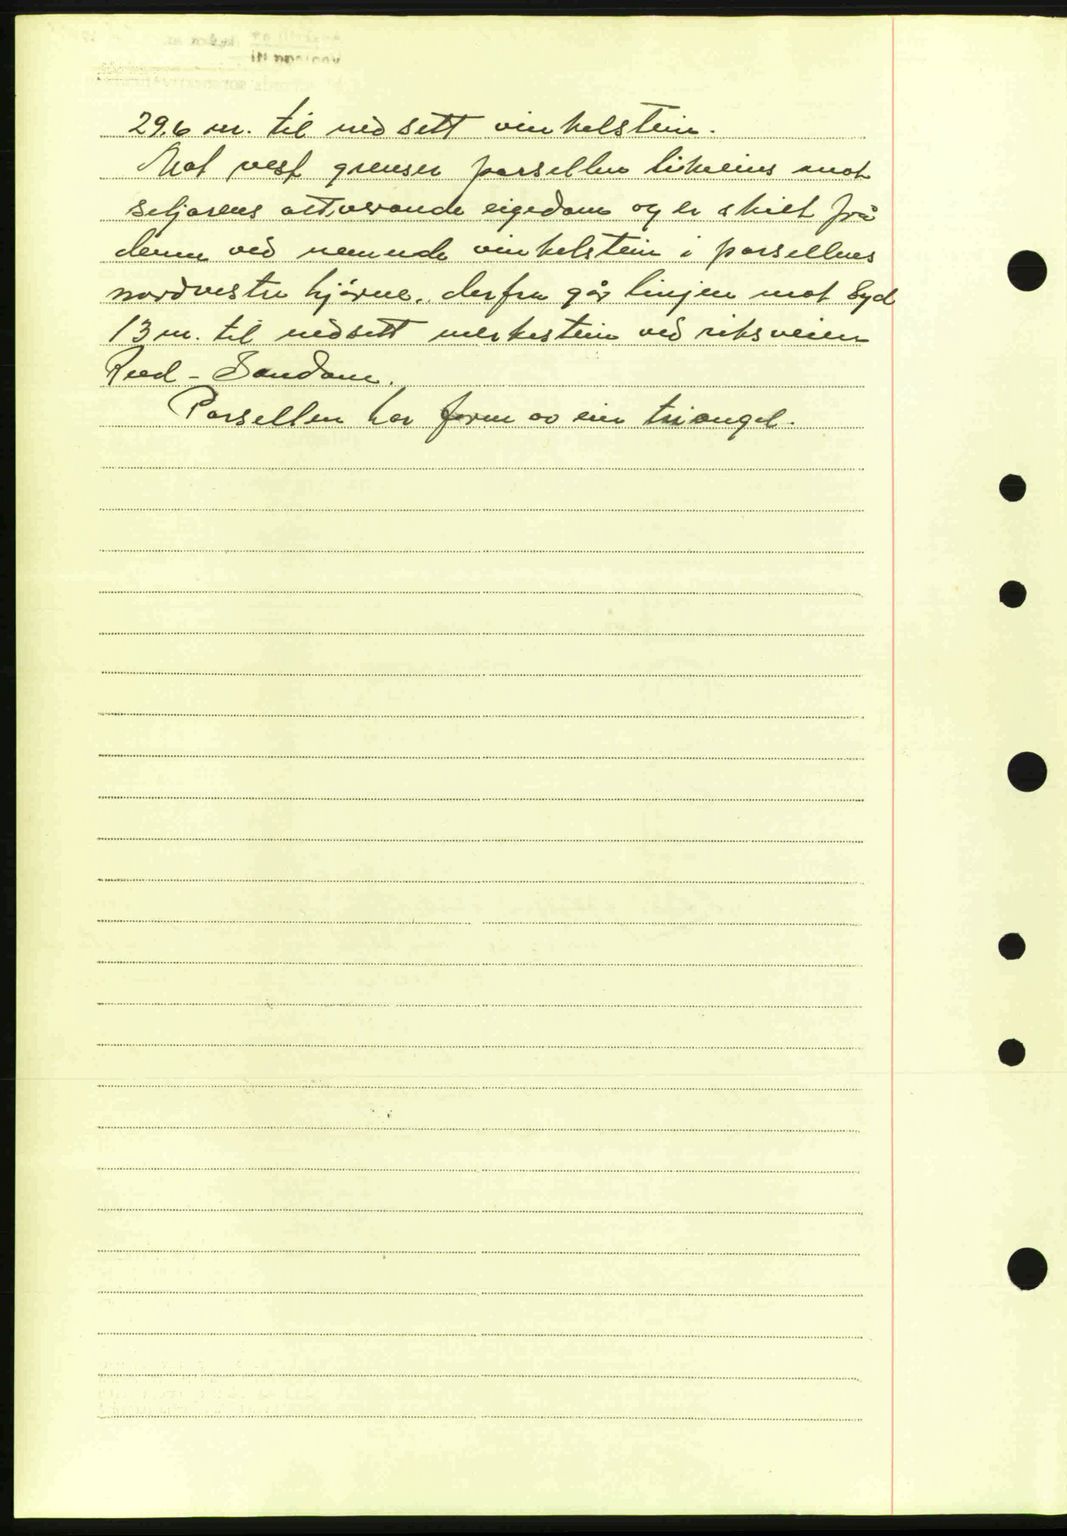 29.6 m. til nedsett vinkelstein.
Mot vest grenser parsellen likeeins mot
seljarens attverande eigedom og er skilt frå
denne ved nemnde vinkelstein i parsellens
nordvestre hjørne. Derfra går linjen mot Syd
13 m. til nedsett merkestein ved riksveien
Reed - Sandane.
Parsellen har form av ein triangel.